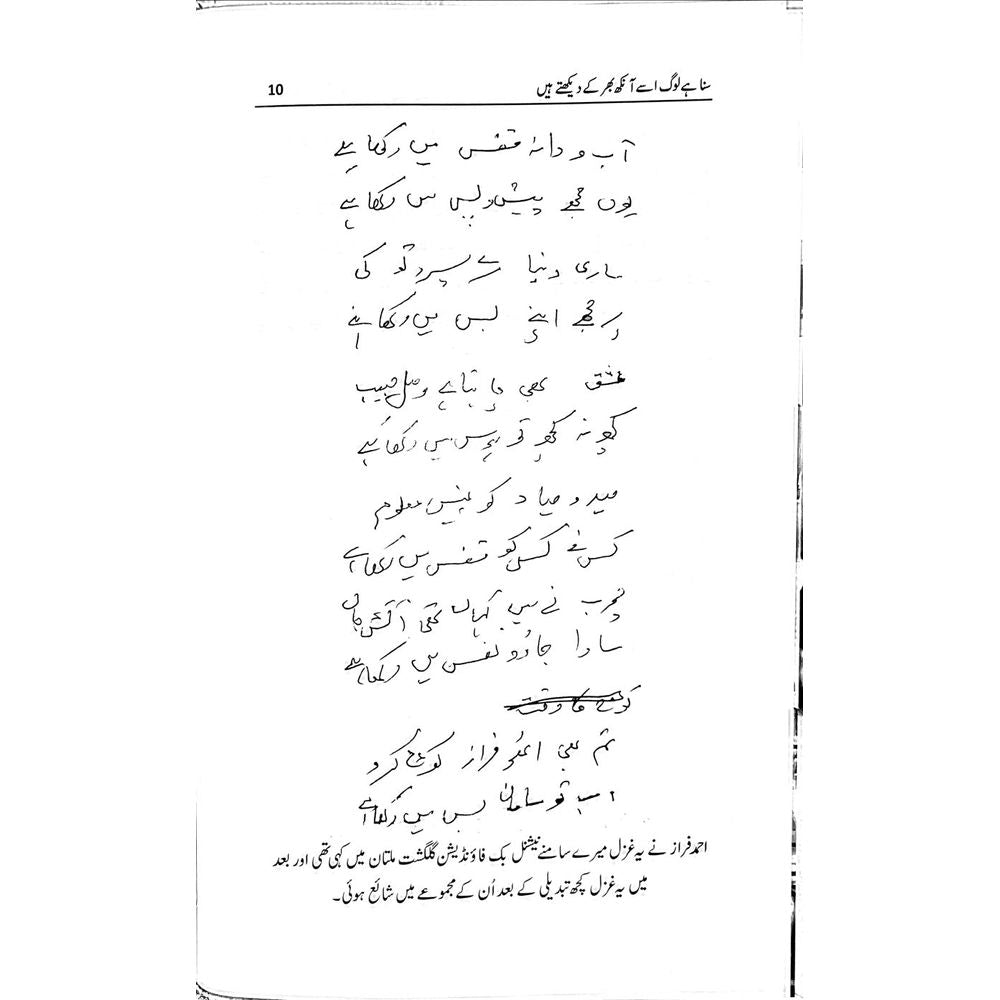 سنا ہے لوگ اسے آنکھ بھر کے دیکھتے ہیں
10
آب و دانہ قفس میں رکھا ہے
یوں مجھے پیش و پس میں رکھا ہے
ساری دنیا کے سپرد تو کی
پر مجھے اپنے بس میں رکھا ہے
عشق بھی مانتا ہے وصلِ حبیب
کچھ نہ کچھ تو ہوس میں رکھا ہے
صید و صیاد کو نہیں معلوم
کس نے کس کو قفس میں رکھا ہے
چوب نے میں کہاں تھی آتشِ جاں
سارا جادو نفس میں رکھا ہے
کوچ کا وقت
تم بھی اٹھو فراز کوچ کرو
اب تو سامان بس میں رکھا ہے
احمد فراز نے یہ غزل میرے سامنے نیشنل بک فاؤنڈیشن گلگشت ملتان میں کہی تھی اور بعد
میں یہ غزل کچھ تبدیلی کے بعد اُن کے مجموعے میں شائع ہوئی۔